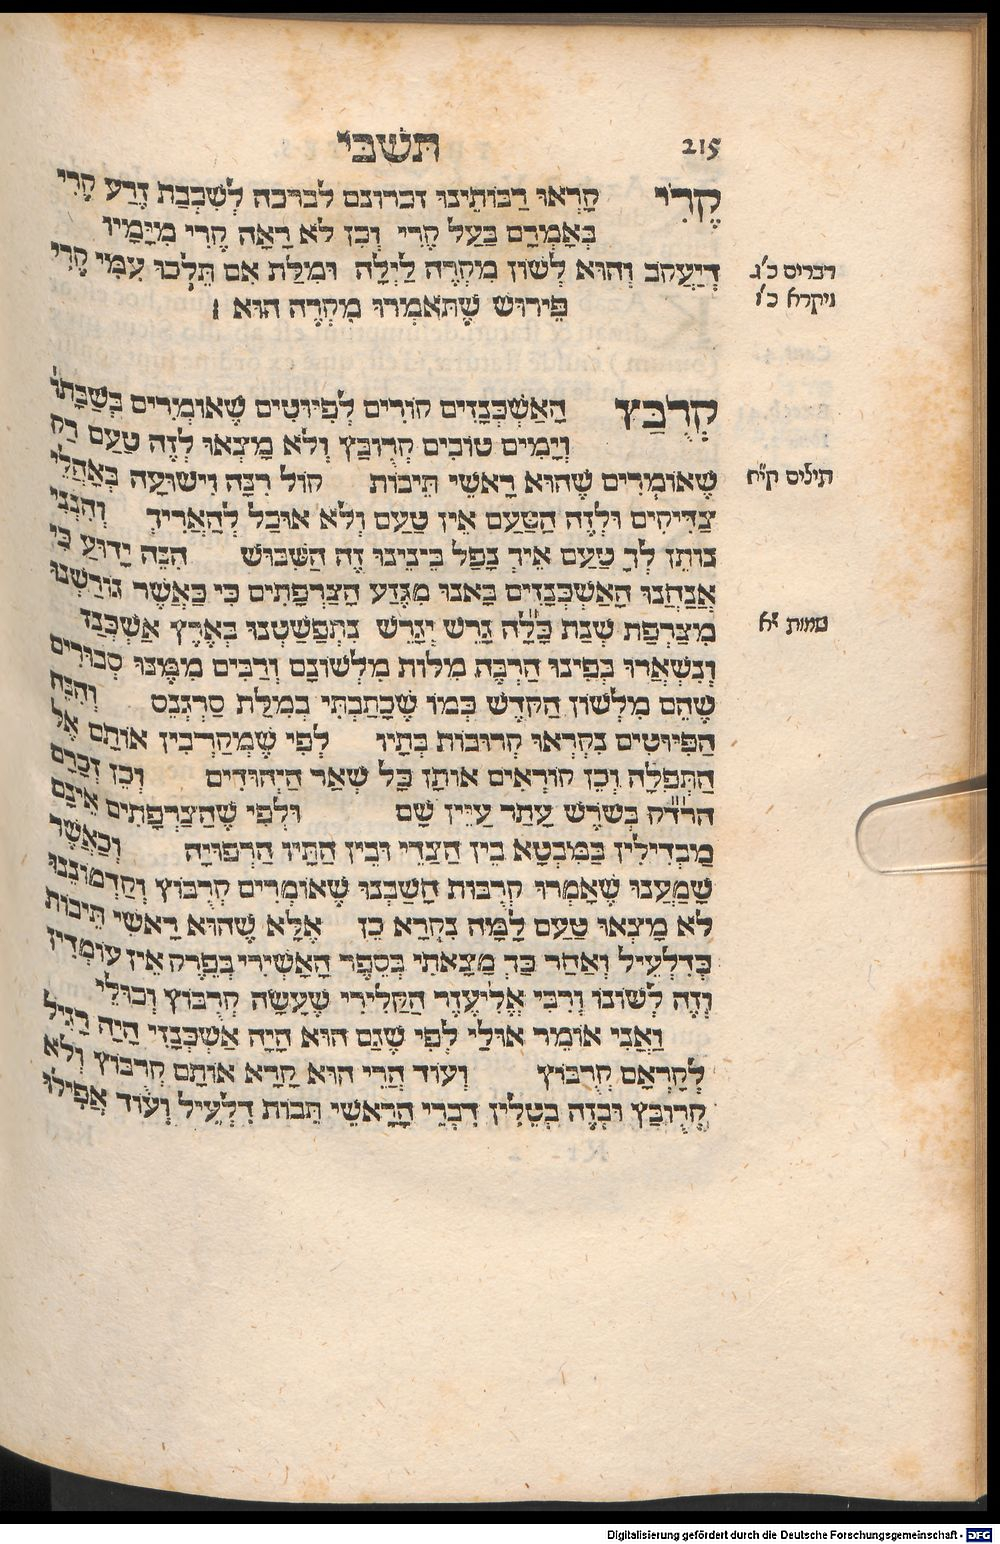 תשבי
215
קֶרִי קָרְאוּ רַבּוֹתֵינוּ זכרונם לברכה לְשִׁכְבַת זֶרַע קֶרִי
בְּאָמְרָם בַּעַל קֶרִי וְכֵן לֹא רָאָה קֶרִי מִיָּמָיו
דְיַעֲקֹב וְהוּא לְשׁוֹן מִקְרֶה לַיְלָה וּמִלַּת אִם תֵּלְכוּ עִמִּי קֶרִי
פֵּירוּשׁ שֶׁתֹּאמְרוּ מִקְרֶה הוּא :
דברים כ״ג
ויקרא כ״ו
קְרֻבַץ הָאַשְׁכְּנָזִים קוֹרִים לְפִיּוּטִים שֶׁאוֹמְרִים בְּשַׁבָּתוֹ
וְיָמִים טוֹבִים קְרֻובַץ וְלֹא מָצְאוּ לָזֶה טַעַם רַק
שֶׁאוֹמְרִים שֶׁהוּא רָאשֵׁי תֵּיבוֹת קוֹל רִנָּה וִישׁוּעָה בְּאָהֳלֵי
תילים קי״ח
צַדִּיקִים וּלְזֶה הַטַּעַם אֵין טַעַם וְלֹא אוּכַל לְהַאֲרִיךְ וְהִנְנִי
נוֹתֵן לְךָ טַעַם אֵיךְ נָפַל בֵּינֵינוּ זֶה הַשִּׁבּוּשׁ הִנֵּה יָדוּעַ כִּי
אֲנַחְנוּ הָאַשְׁכְּנַזִים בָּאנוּ מִגֶּזַע הַצַּרְפָתִים כִּי כַּאֲשֶׁר גּוֹרַשְׁנוּ
מִצָּרְפַת שְׁנַת כָּלָ״ה גָרֵשׁ יְגָרֵשׁ נִתְפַּשַּׁטְנוּ בְּאֶרֶץ אַשְׁכְּנַז
שמות י״א
וְנִשְׁאֲרוּ בְּפִינוּ הַרְבֵּה מִלּוֹת מִלְּשׁוֹנָם וְרַבִּים מִמֶּנּוּ סְבוּרִים
שֶׁהֵם מִלְּשׁוֹן הַקֹּדֶשׁ כְּמוֹ שֶׁכָּתַבְתִּי בְּמִלַּת סַרְגְנֵס וְהִנֵּה
הַפִּיּוּטִים נִקְרְאוּ קְרוּבוֹת בְּתָיו לְפִי שֶׁמְקַרְבִין אוֹתָם אֶל
הַתְּפִלָּה וְכֵן קוֹרְאִים אוֹתָן כָּל שְׁאַר הַיְּהוּדִים וְכֵן זְכָרָם
הרד״ק בְּשֹׁרֶשׁ עָתַר עַיֵּין שָׁם וּלְפִי שֶׁהַצַּרְפָתִים אֵינָם
מַבְדִּילִין בְּמִבְטָא בֵּין הַצַּדִי וּבֵין הַתָּיו הָרְפוּיָה וְכַאֲשֶׁר
שָׁמַעְנוּ שֶׁאָמְרוּ קְרֻבוֹת חָשַׁבְנוּ שֶׁאוֹמְרִים קְרֻבוֹץ וְקַדְמוֹנֵנוּ
לֹא מָצְאוּ טַעַם לָמָּה נִקְרָא כֵן אֶלָּא שֶׁהוּא רָאשֵׁי תֵּיבוֹת
כְּדִלְעֵיל וְאַחַר כַּךְ מָצָאתִי בְּסֵפֶר הָאֲשִׁירִי בְּפֶרֶק אֵין עוֹמְדִין
וְזֶה לְשׁוֹנוֹ וְרִבִּי אֱלִיעֶזֶר הַקַּלִירִי שֶׁעָשָׂה קְרֻבוֹץ וְכוּלֵּי
וַאֲנִי אוֹמֵר אוּלַי לְפִי שֶׁגַּם הוּא הָיָה אַשְׁכְּנַזִי הָיָה רָגִיל
לְקָרְאָם קְרֻבוֹץ וְעוֹד הֲרֵי הוּא קָרָא אוֹתָם קְרֻבוֹץ וְלֹא
קְרֻובַץ וּבְזֶה בְּטֵלִין דִּבְרֵי הָרָאשֵׁי תֵּבוֹת דִּלְעֵיל וְעוֹד אֲפִילוּ
Digitalisierung gefördert durch die Deutsche Forschungsgemeinschaft - DFG